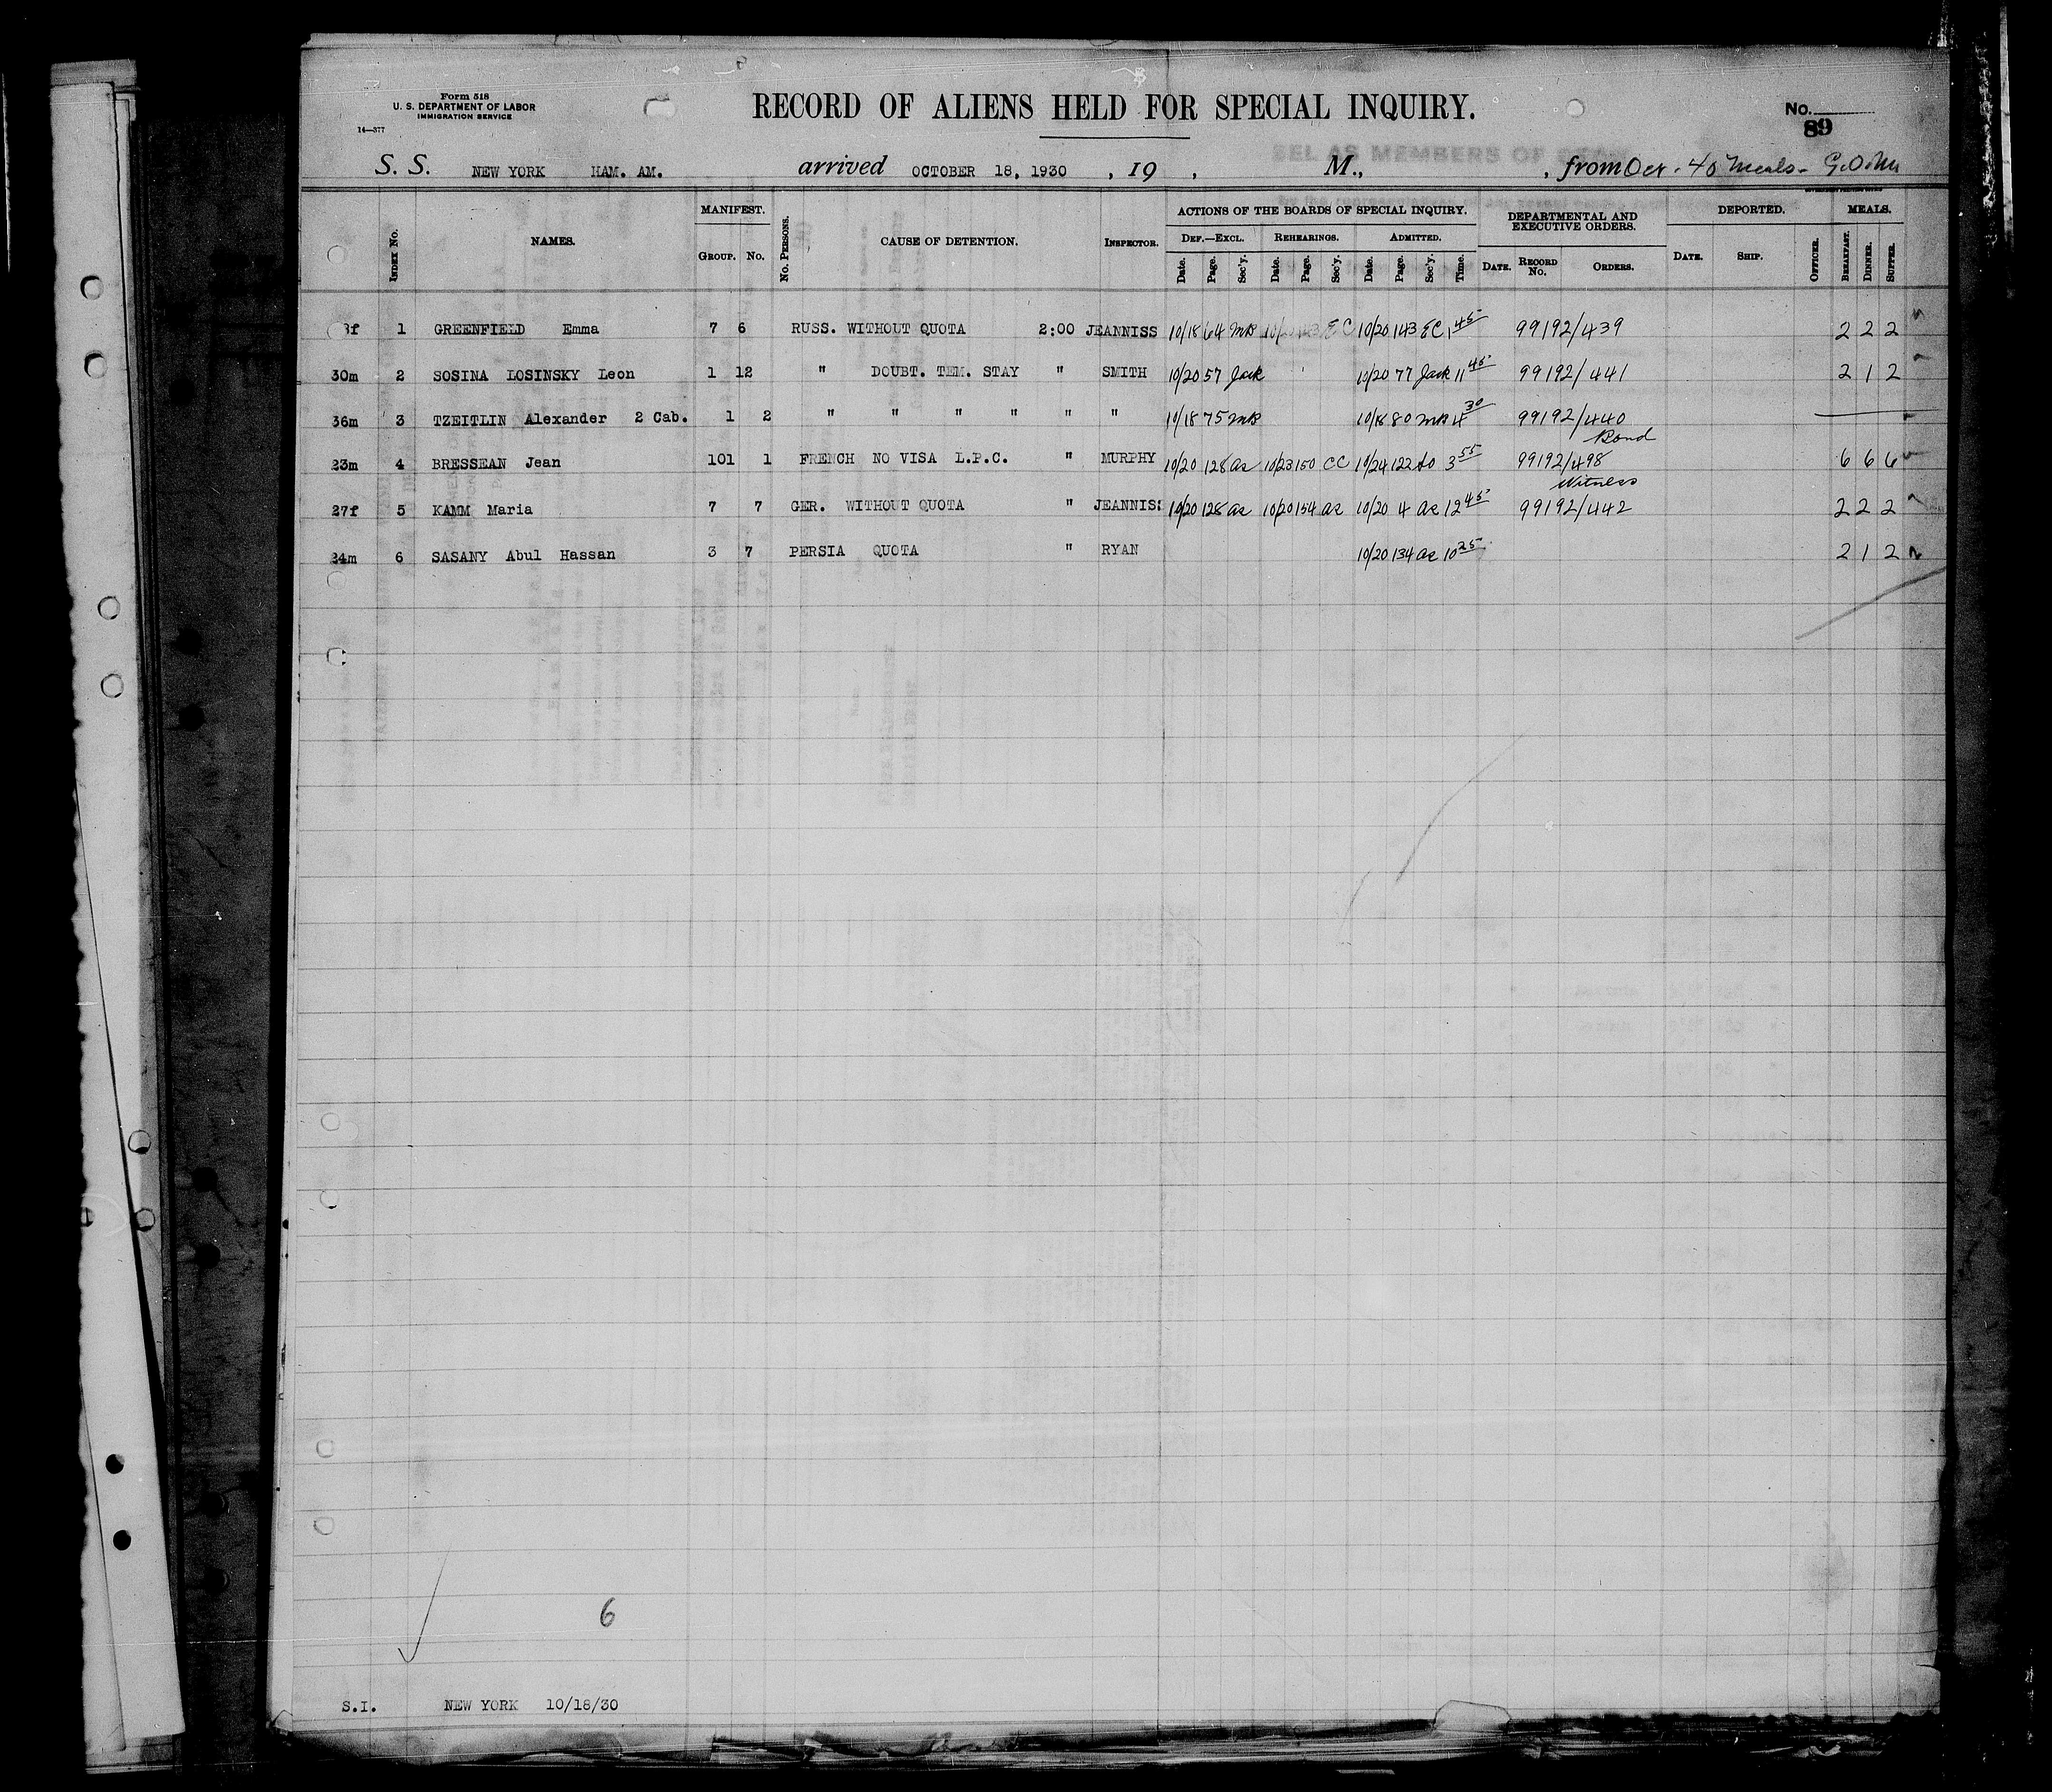 Form 518
U. S. DEPARTMENT OF LABOR
IMMIGRATION SERVICE
14—377
RECORD OF ALIENS HELD FOR SPECIAL INQUIRY.
No.
89
S. S. NEW YORK HAM. AM. arrived OCTOBER 18, 1930 , 19 , M., , from Oct. 40 Meals-
INDEX No. NAMES. MANIFEST. GROUP. No. No. PERSONS. CAUSE OF DETENTION. INSPECTOR. ACTIONS OF THE BOARDS OF SPECIAL INQUIRY. DEF.—EXCL. Date. Page. Sec'y. REHEARINGS. Date. Page. Sec'y. ADMITTED. Date. Page. Sec'y. Time. DEPARTMENTAL AND EXECUTIVE ORDERS. DATE. RECORD No. ORDERS. DEPORTED. DATE. SHIP. OFFICER. MEALS. BREAKFAST. DINNER. SUPPER.
f 1 GREENFIELD Emma 7 6 RUSS. WITHOUT QUOTA 2:00 JEANNISS 10/18 64 MB EC 10/20 143 EC 1 45 99192/439 2 2 2
30m 2 SOSINA LOSINSKY Leon 1 12 " DOUBT. TEM. STAY " SMITH 10/20 57 Jack 10/20 77 Jack 11 45 99192/441 2 1 2
36m 3 TZEITLIN Alexander 2 Cab. 1 2 " " " " " " 10/18 75 MB 10/18 80 MB 4 30 99192/440
Bond
23m 4 BRESSEAN Jean 101 1 FRENCH NO VISA L.P.C. " MURPHY 10/20 128 as 10/23 150 CC 10/24 122 3 55 99192/498 6 6 6
Witness
27f 5 KAMM Maria 7 7 GER. WITHOUT QUOTA " JEANNIS 10/20 128 as 10/20 154 as 10/20 4 as 12 45 99192/442 2 2 2
24m 6 SASANY Abul Hassan 3 7 PERSIA QUOTA " RYAN 10/20 134 as 10 25 2 1 2
6
S.I. NEW YORK 10/18/30